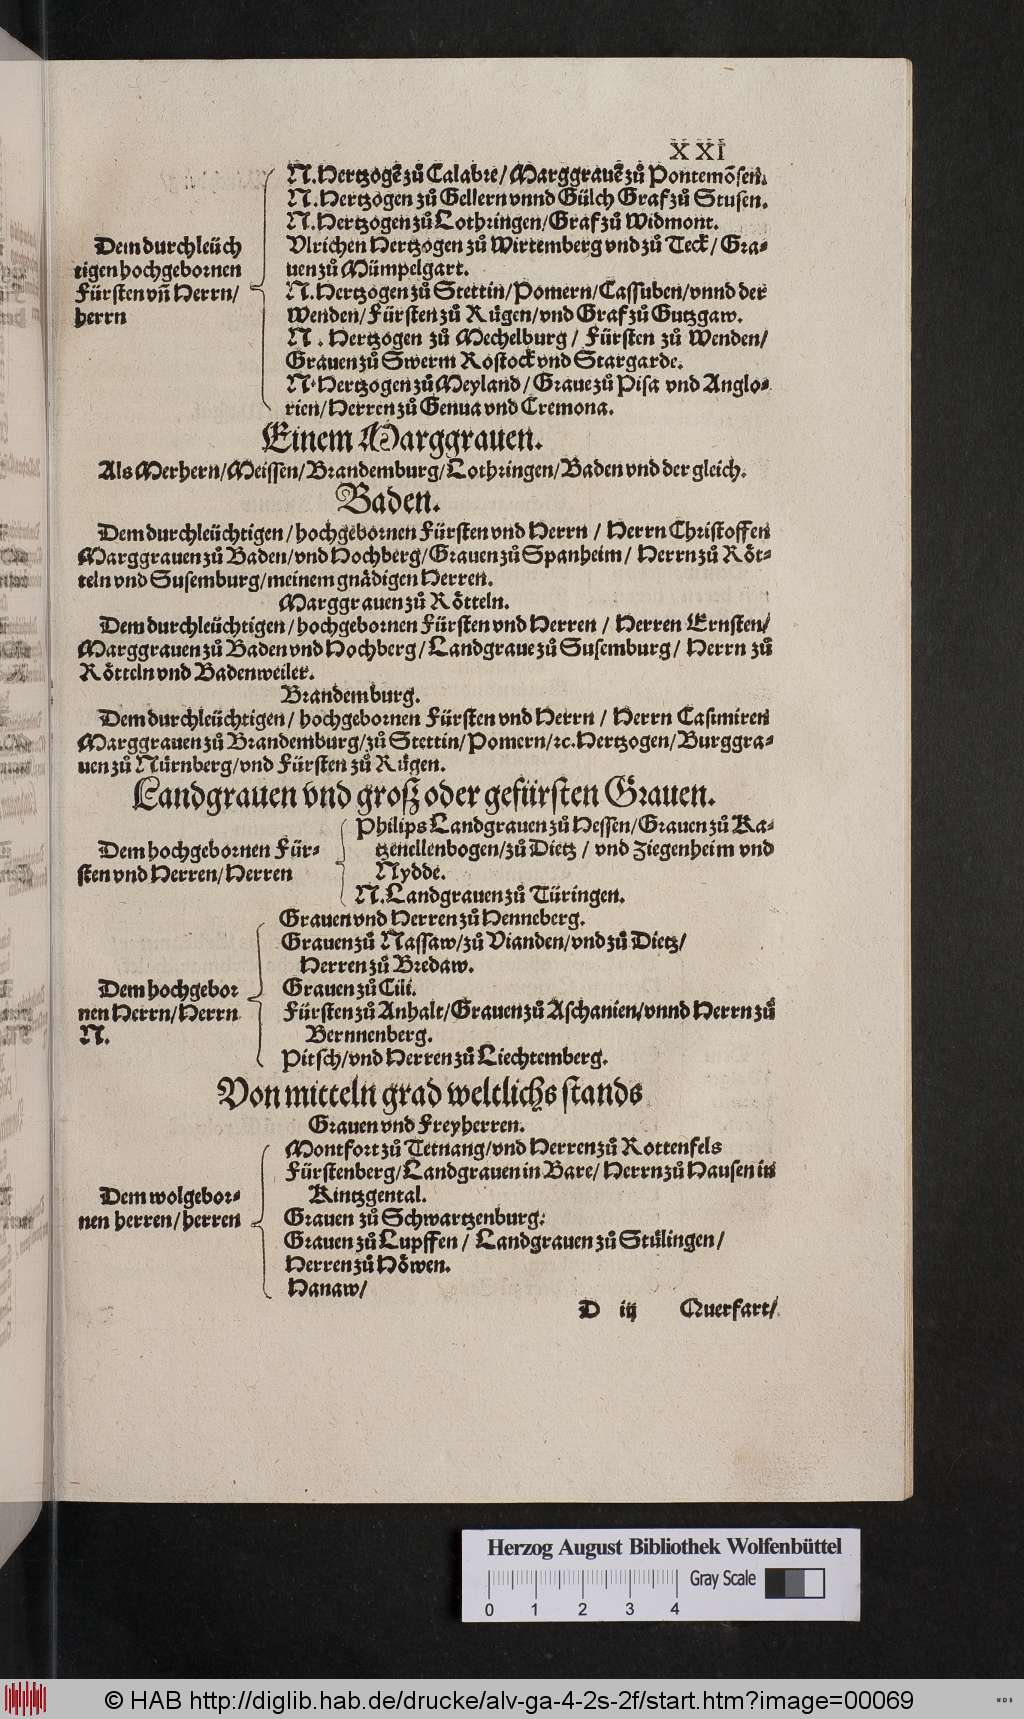 XXI
Dem durchleüch
tigen hochgebornen
Fürsten vñ Herrn/
herrn
N. Hertzogẽ zů Calabre/ Marggrauẽ zů Pontemõsen.
N. Hertzogen zů Gellern vnnd Gülch Graf zů Stusen.
N. Hertzogen zů Lothringen/ Graf zů Widmont.
Vlrichen Hertzogen zů Wirtemberg vnd zů Teck/ Gra-
uen zů Mümpelgart.
N. Hertzogen zů Stettin/ Pomern/ Cassuben/ vnnd der
Wenden/ Fürsten zů Rügen/ vnd Graf zů Gutzgaw.
N. Hertzogen zů Mechelburg/ Fürsten zů Wenden/
Grauen zů Swerm Rostock vnd Stargarde.
N. Hertzogen zů Meyland/ Graue zů Pisa vnd Anglo-
rien/ Herren zů Genua vnd Cremona.
Einem Marggrauen.
Als Merhern/ Meissen/ Brandemburg/ Lothringen/ Baden vnd der gleich.
Baden.
Dem durchleüchtigen/ hochgebornen Fürsten vnd Herrn/ Herrn Christoffen
Marggrauen zů Baden/ vnd Hochberg/ Grauen zů Spanheim/ Herrn zů Röt-
teln vnd Susemburg/ meinem gnädigen Herren.
Marggrauen zů Rötteln.
Dem durchleüchtigen/ hochgebornen Fürsten vnd Herren/ Herren Ernsten/
Marggrauen zů Baden vnd Hochberg/ Landgraue zů Susemburg/ Herrn zů
Rötteln vnd Badenweiler.
Brandemburg.
Dem durchleüchtigen/ hochgebornen Fürsten vnd Herrn/ Herrn Casimiren
Marggrauen zů Brandemburg/ zů Stettin/ Pomern/ ꝛc. Hertzogen/ Burggra-
uen zů Nürnberg/ vnd Fürsten zů Rügen.
Landgrauen vnd groß oder gefürsten Grauen.
Dem hochgebornen Für-
sten vnd Herren/ Herren
Philips Landgrauen zů Hessen/ Grauen zů Ka-
tzenellenbogen/ zů Dietz/ vnd Ziegenheim vnd
Nydde.
N. Landgrauen zů Türingen.
Dem hochgebor
nen Herrn/ Herrn
N.
Grauen vnd Herren zů Henneberg.
Grauen zů Nassaw/ zů Vianden/ vnd zů Dietz/
Herren zů Bredaw.
Grauen zů Cili.
Fürsten zů Anhalt/ Grauen zů Aschanien/ vnnd Herrn zů
Bernnenberg.
Pitsch/ vnd Herren zů Liechtemberg.
Von mitteln grad weltlichs stands
Grauen vnd Freyherren.
Dem wolgebor-
nen herren/ herren
Montfort zů Tetnang/ vnd Herren zů Rottenfels
Fürstenberg/ Landgrauen in Bare/ Herrn zů Hausen in
Kintzgental.
Grauen zů Schwartzenburg.
Grauen zů Lupffen/ Landgrauen zů Stülingen/
Herren zů Höwen.
Hanaw/
D iij Querfart/
Herzog August Bibliothek Wolfenbüttel
Gray Scale
0 1 2 3 4
© HAB http://diglib.hab.de/drucke/alv-ga-4-2s-2f/start.htm?image=00069